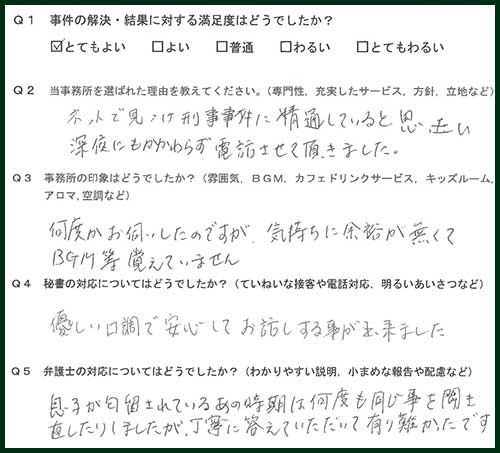 Q1 事件の解決・結果に対する満足度はどうでしたか？
☑とてもよい □よい □普通 □わるい □とてもわるい
Q2 当事務所を選ばれた理由を教えてください。（専門性，充実したサービス，方針，立地など）
ネットで見つけ刑事事件に精通していると思い
深夜にもかかわらず電話させて頂きました。
Q3 事務所の印象はどうでしたか？（雰囲気，ＢＧＭ，カフェドリンクサービス，キッズルーム，
アロマ，空調など）
何度かお伺いしたのですが、気持ちに余裕が無くて
BGM等覚えていません
Q4 秘書の対応についてはどうでしたか？（ていねいな接客や電話対応，明るいあいさつなど）
優しい口調で安心してお話しする事が出来ました
Q5 弁護士の対応についてはどうでしたか？（わかりやすい説明，小まめな報告や配慮など）
息子が勾留されているあの時期は何度も同じ事を聞き
直したりしましたが、丁寧に答えていただいて有り難かったです